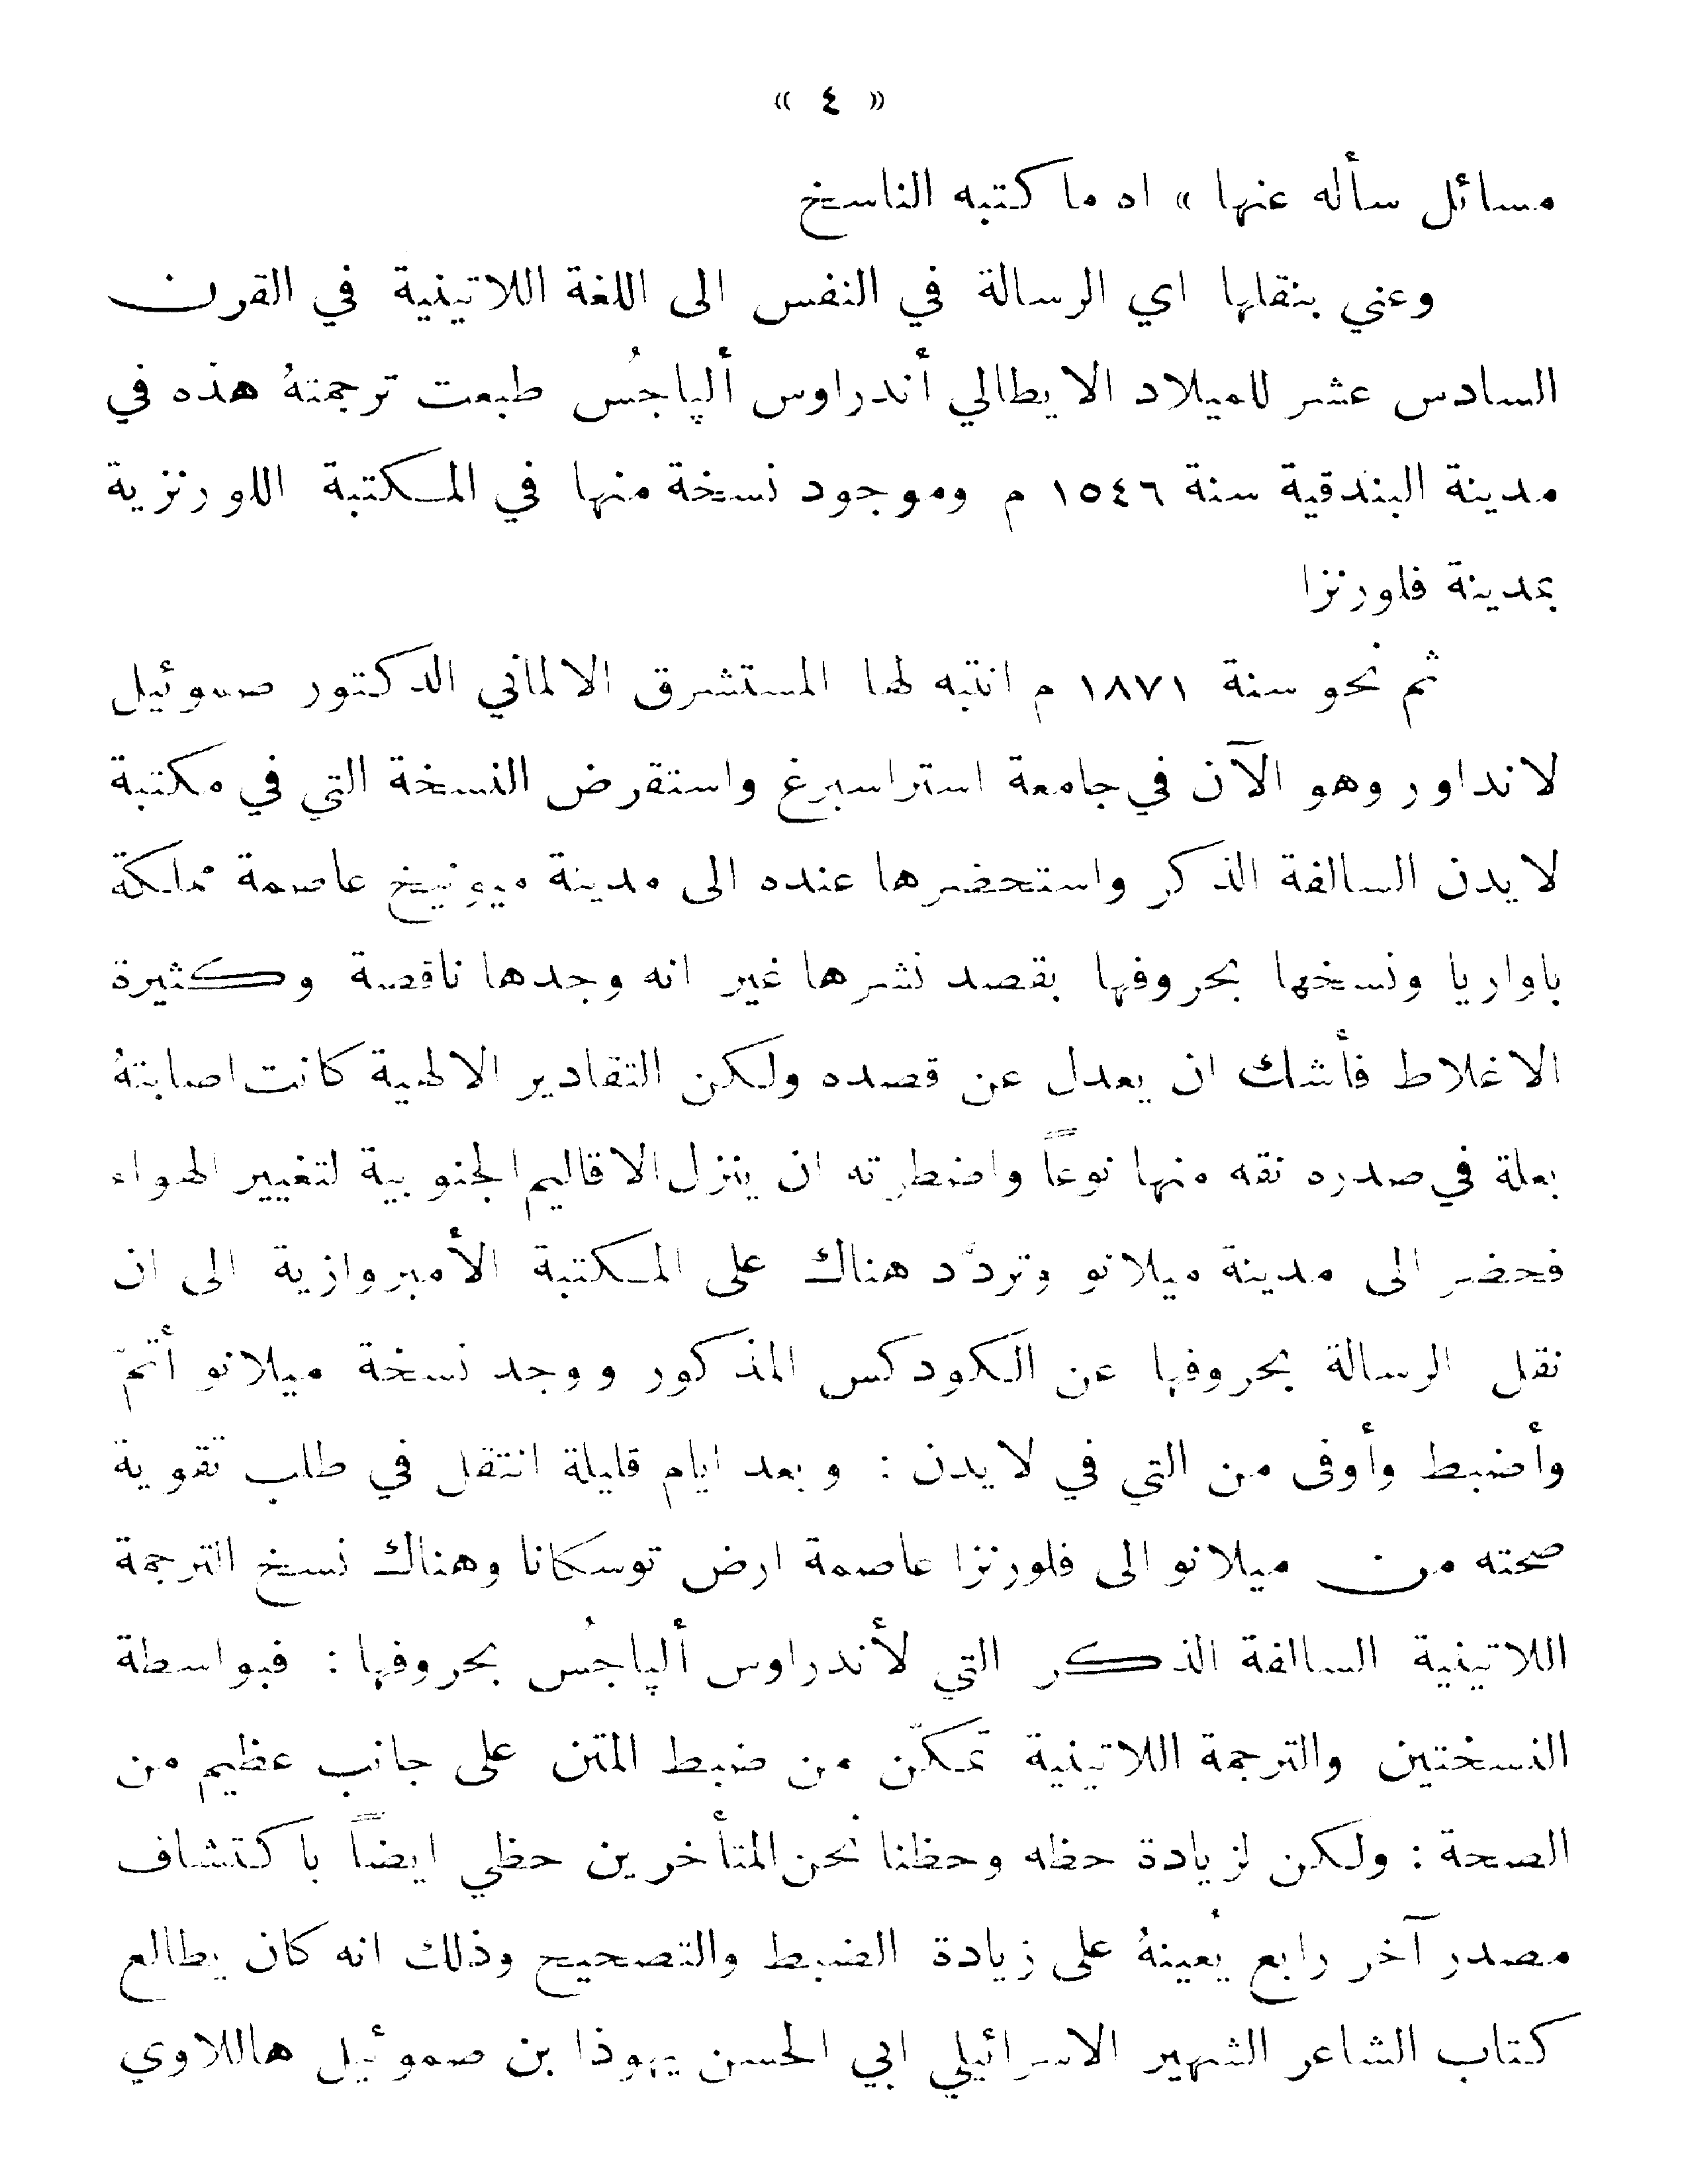 « ٤ »
مسائل سأله عنها » اه ما كتبه الناسخ
وعني بنقلها اي الرسالة في النفس الى اللغة اللاتينية في القرن
السادس عشر للميلاد الايطالي أندراوس ألپاجُس طبعت ترجمتهُ هذه في
مدينة البندقية سنة ١٥٤٦ م وموجود نسخة منها في المكتبة اللورنزية
بمدينة فلورنزا
ثم نحو سنة ١٨٧١ م انتبه لها المستشرق الالماني الدكتور صموئيل
لانداور وهو الآن في جامعة استراسبرغ واستقرض النسخة التي في مكتبة
لايدن السالفة الذكر واستحضرها عنده الى مدينة ميونيخ عاصمة مملكة
باواريا ونسخها بحروفها بقصد نشرها غير انه وجدها ناقصة وكثيرة
الاغلاط فأشك ان يعدل عن قصده ولكن التقادير الالهية كانت اصابتهُ
بعلة في صدره نقه منها نوعاً واضطرته ان ينزل الاقاليم الجنوبية لتغيير الهواء
فحضر الى مدينة ميلانو وتردّد هناك على المكتبة الأمبروازية الى ان
نقل الرسالة بحروفها عن الكودكس المذكور ووجد نسخة ميلانو أتمّ
وأضبط وأوفى من التي في لايدن : وبعد ايام قليلة انتقل في طلب تقوية
صحته من ميلانو الى فلورنزا عاصمة ارض توسكانا وهناك نسخ الترجمة
اللاتينية السالفة الذكر التي لأندراوس ألپاجُس بحروفها : فبواسطة
النسختين والترجمة اللاتينية تمكّن من ضبط المتن على جانب عظيم من
الصحة : ولكن لزيادة حظه وحظنا نحن المتأخرين حظي ايضاً باكتشاف
مصدر آخر رابع يُعينهُ على زيادة الضبط والتصحيح وذلك انه كان يطالع
كتاب الشاعر الشهير الاسرائيلي ابي الحسن يهوذا بن صموئيل هاللاوي